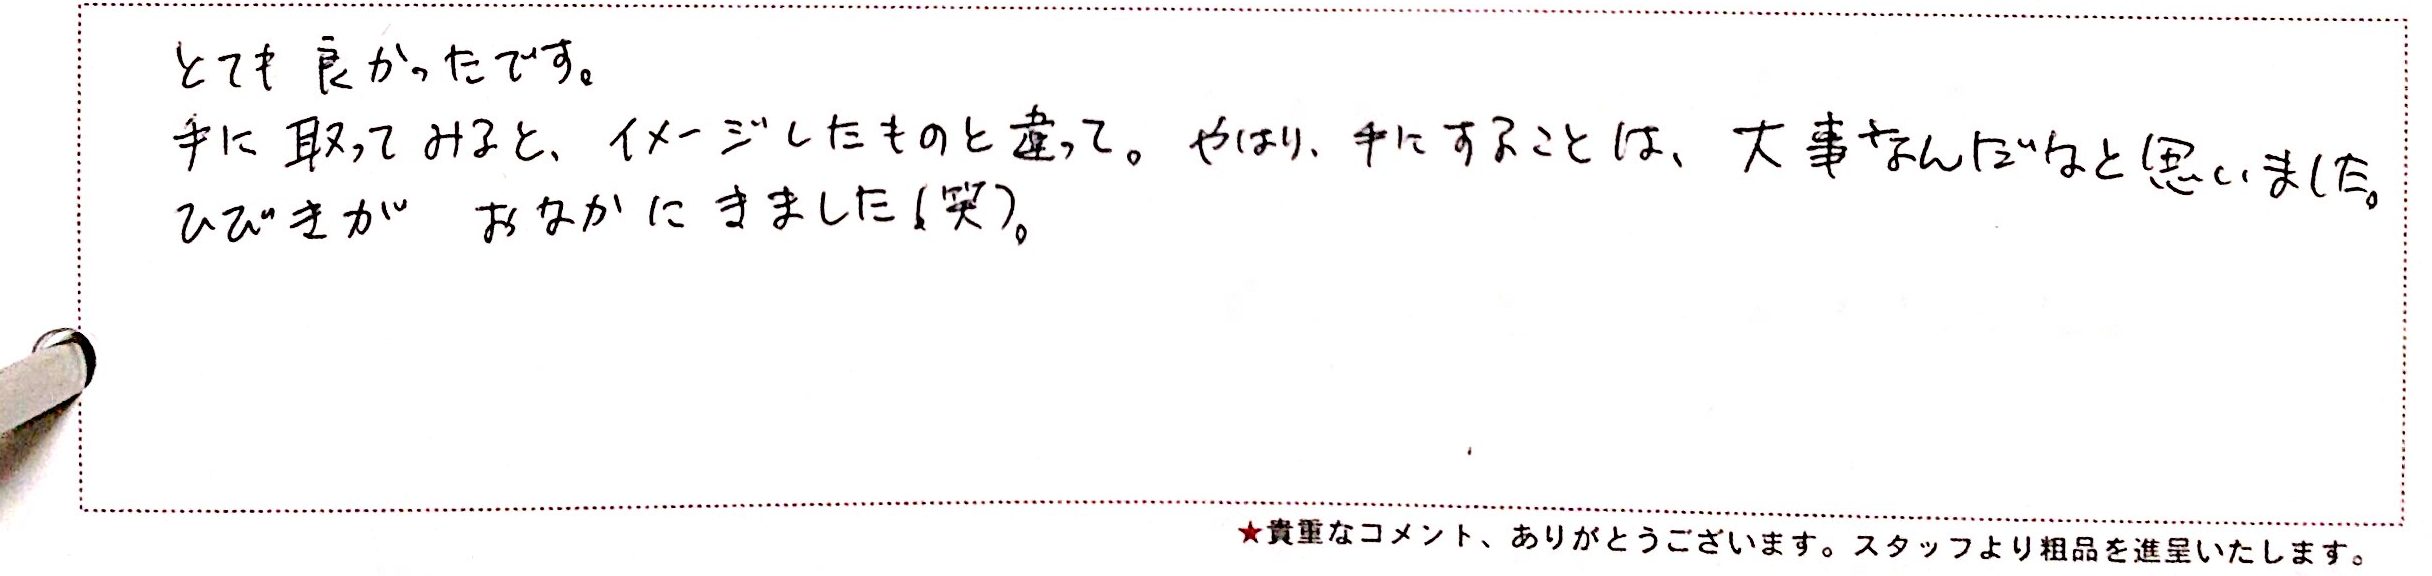 とても 良かったです。
手に 取ってみると、イメージしたものと違って。やはり、手にすることは、大事なんだなと思いました。
ひびきが おなかに きました(笑)。
★貴重なコメント、ありがとうございます。スタッフより粗品を進呈いたします。